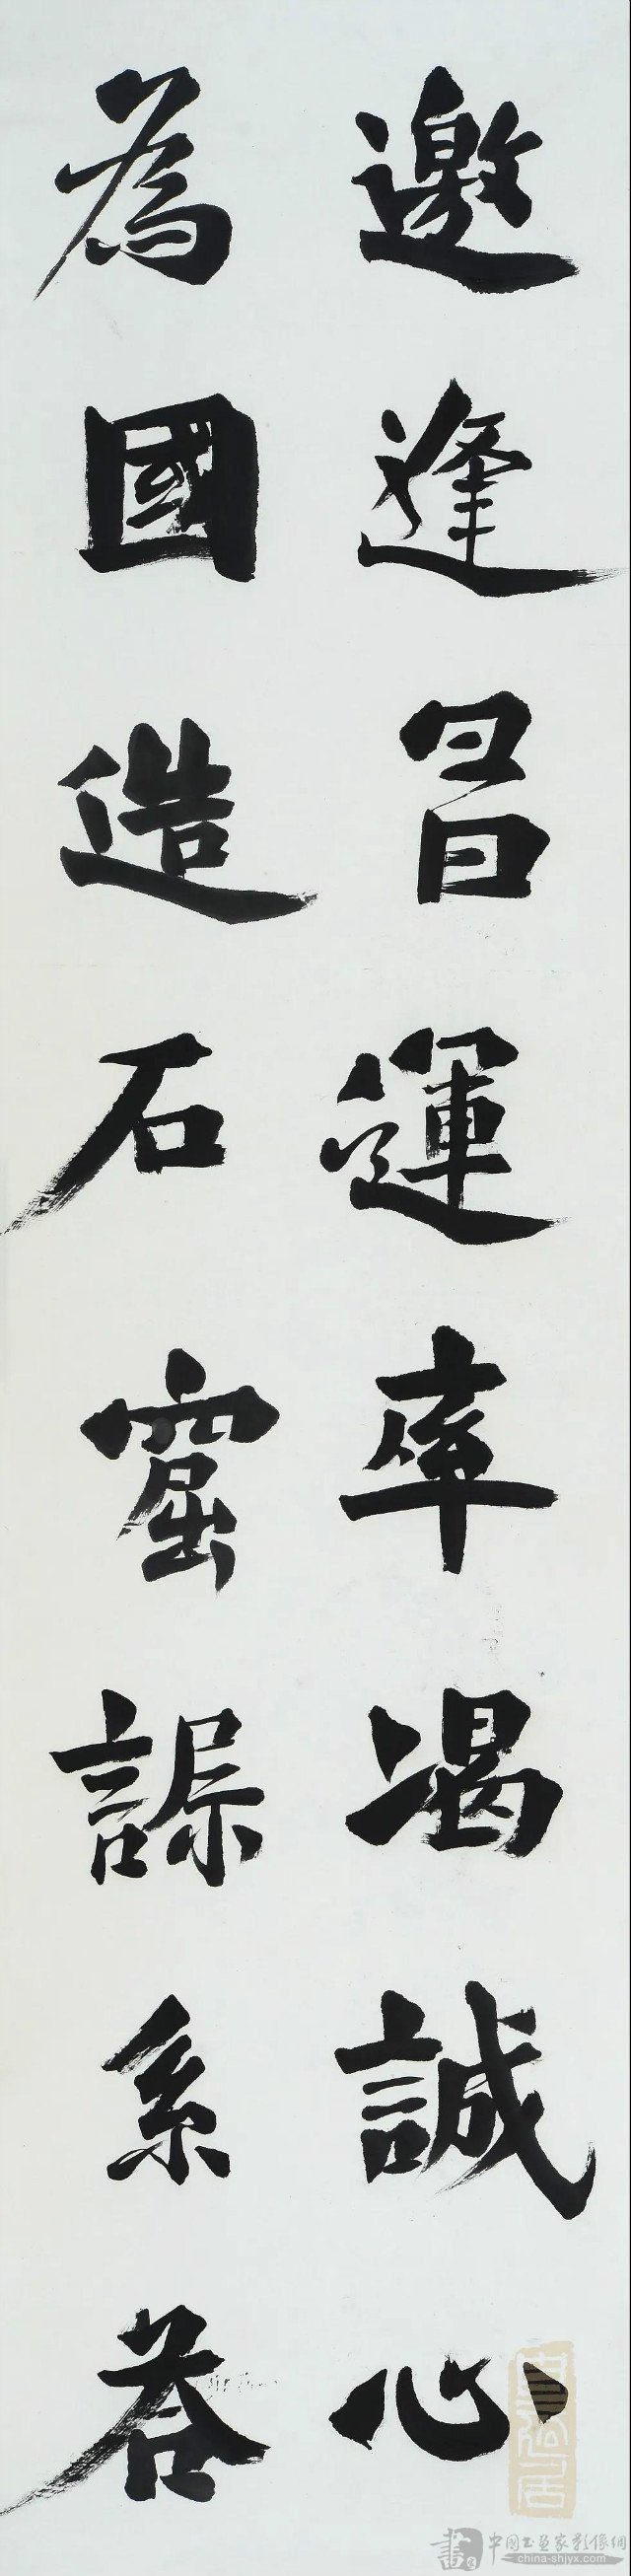 邀逢昌運率渴誠心
為國造石窟系荅
中国书画家影像網
china-shjyx.com